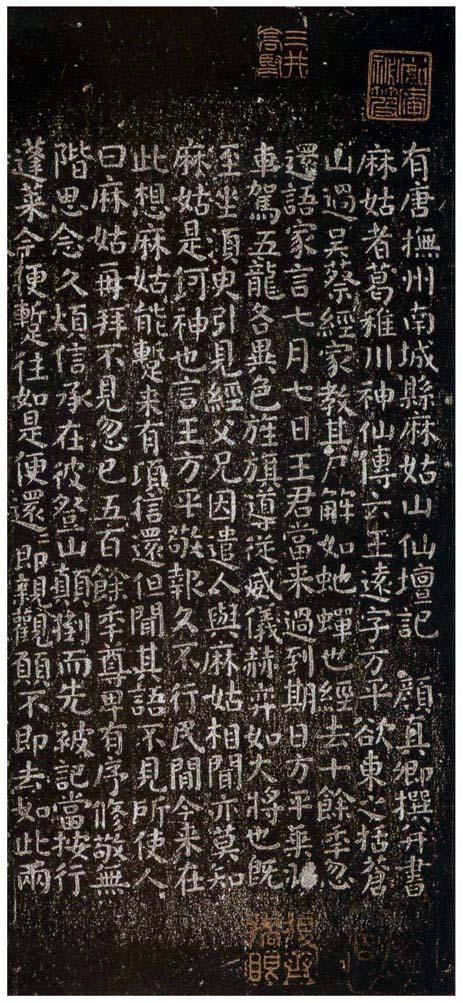 三井高堅
有唐撫州南城縣麻姑山仙壇記　顏真卿撰并書
麻姑者葛稚川神仙傳云王遠字方平欲東之括蒼
山過吳蔡經家教其尸解如虵蟬也經去十餘季忽
還語家言七月七日王君當来過到期日方平乘羽
車駕五龍各異色旌旗導従威儀赫弈如大将也旣
至坐須臾引見經父兄因遣人與麻姑相聞亦莫知
麻姑是何神也言王方平敬報久不行民間今来在
此想麻姑能蹔来有頃信還但聞其語不見所使人
曰麻姑再拜不見忽已五百餘季尊卑有序修敬無
階思念久煩信承在彼登山顛倒而先被記當按行
蓬萊今便蹔往如是便還〻即親觀願不即去如此兩